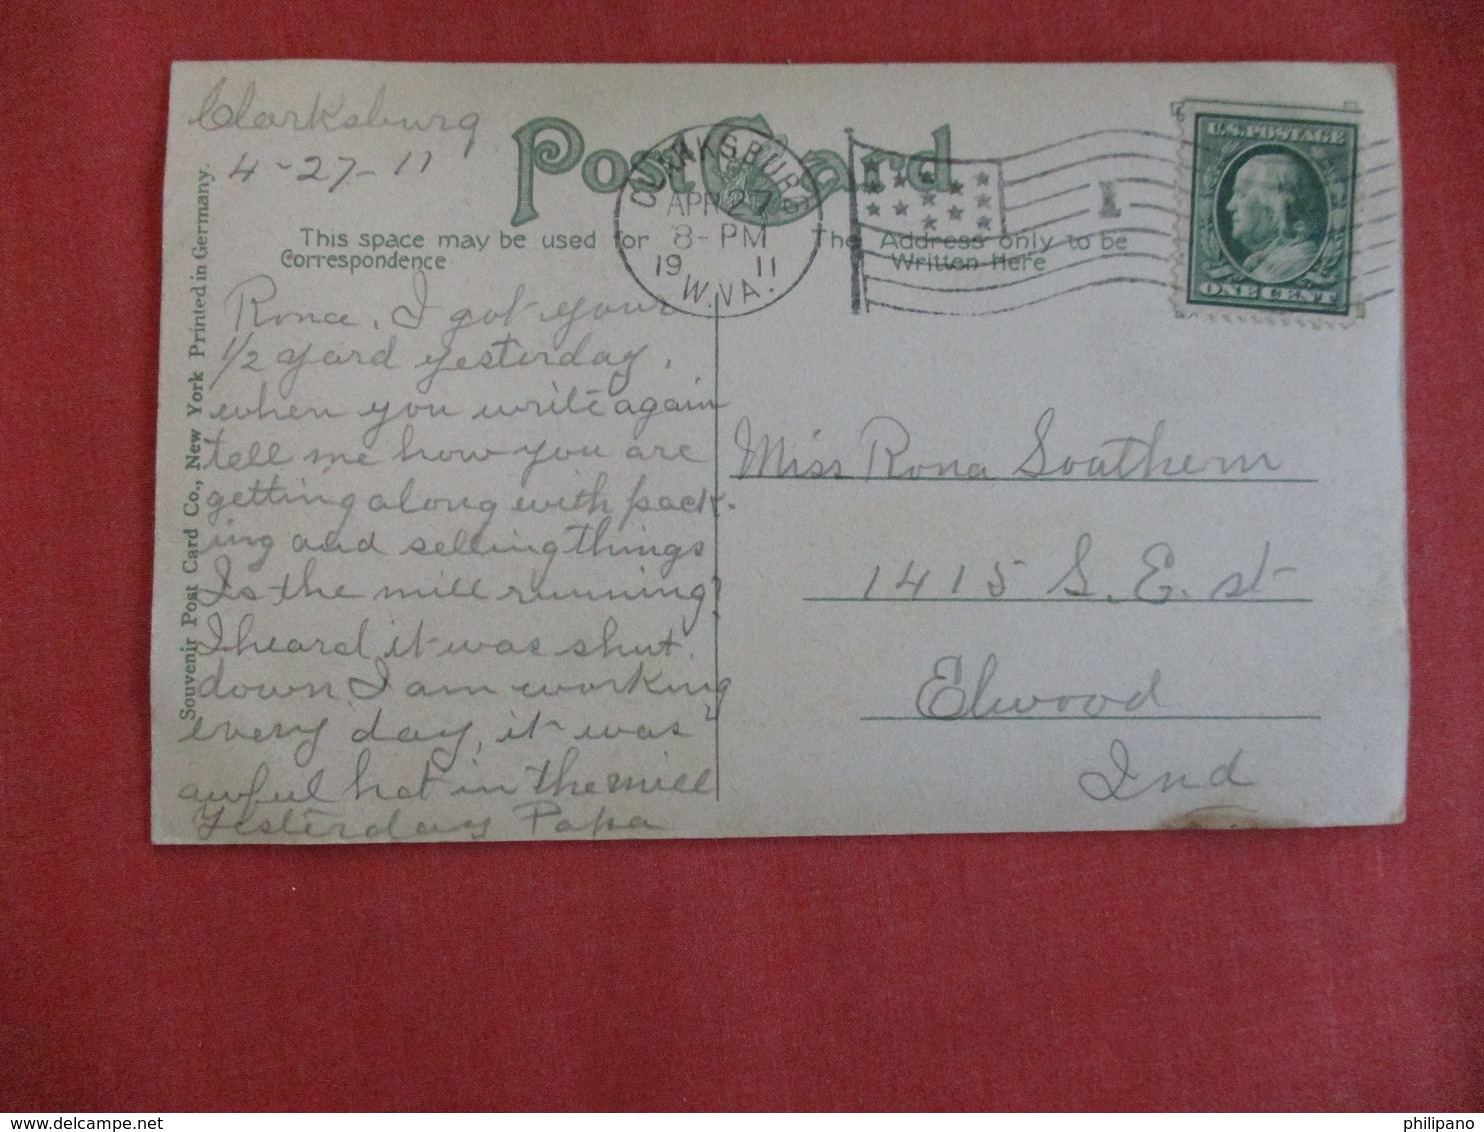 Clarksburg
4-27-11
Post Card
CLARKSBURG
APR 27
8-PM
19 11
W.VA.
1
U.S. POSTAGE
ONE CENT
This space may be used for
Correspondence
The Address only to be
Written Here
Souvenir Post Card Co., New York Printed in Germany.
Rona, I got your
1/2 yard yesterday,
when you write again
tell me how you are
getting along with pack-
ing and selling things
Is the mill running?
I heard it was shut
down I am working
every day, it was
awful hot in the mill
Yesterday Papa
Miss Rona Southern
1415 S. E. st
Elwood
Ind
philipano